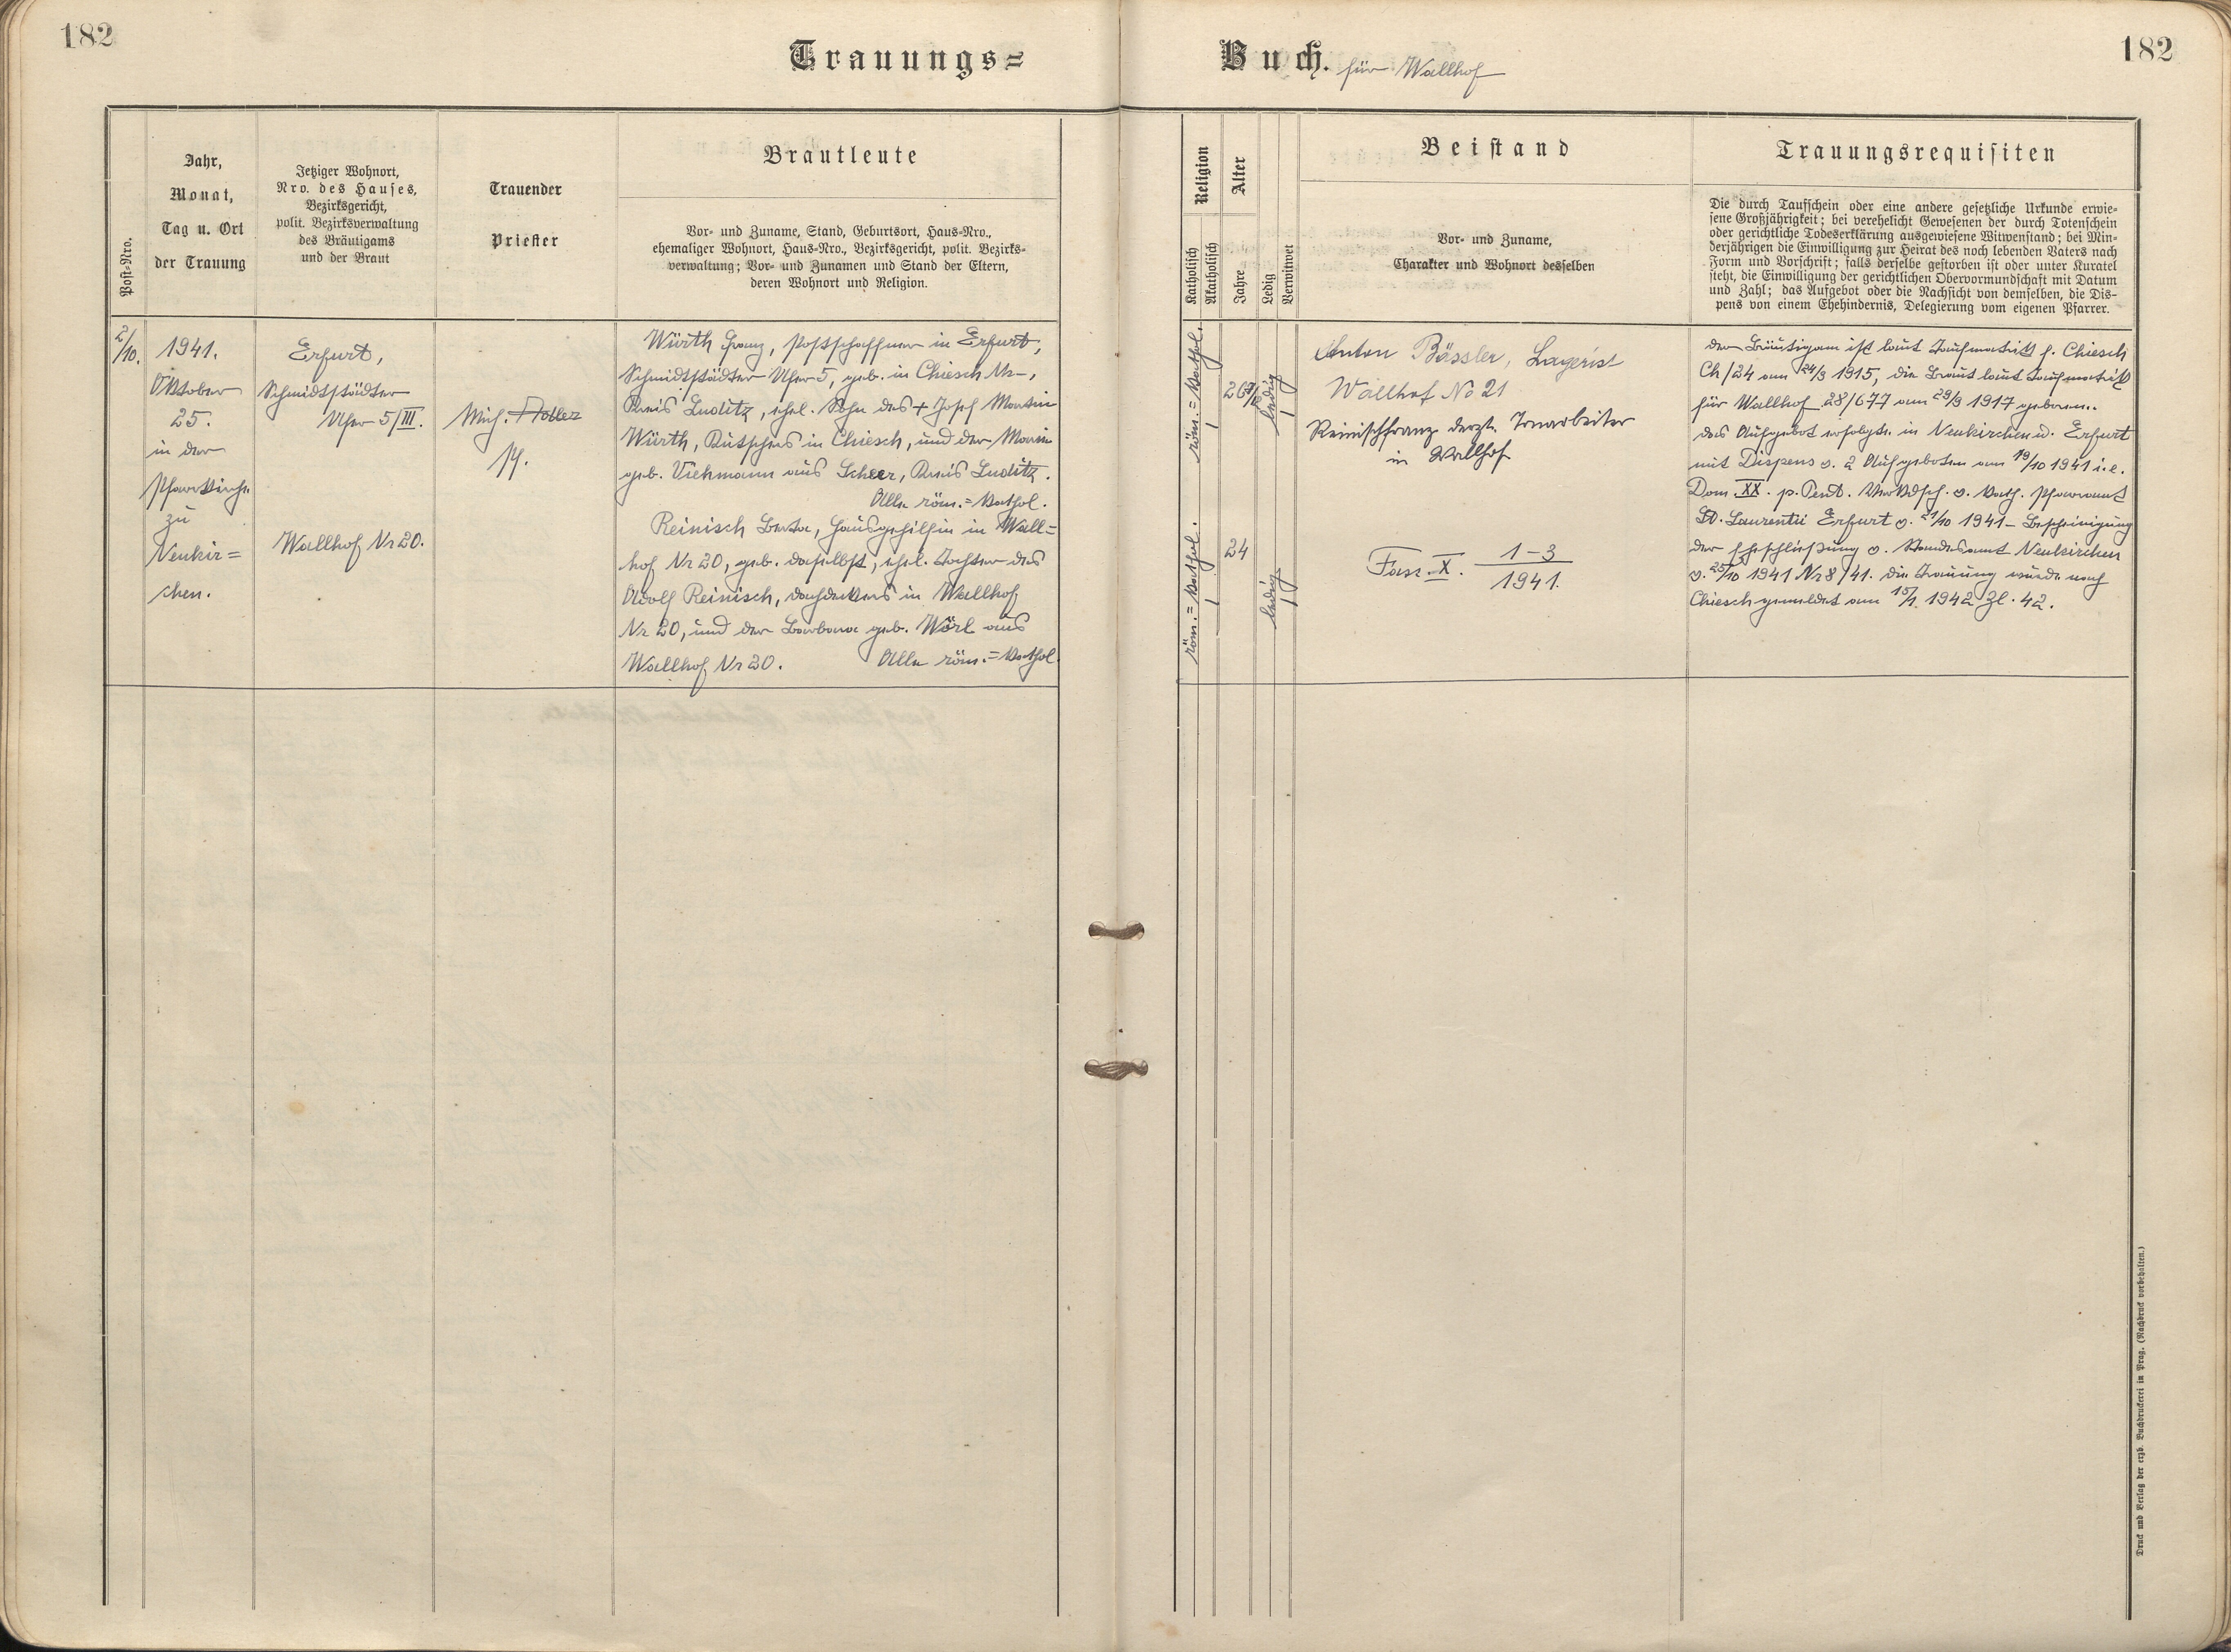 182
Trauungs=
Buch. für Wallhof
182
Post-Nro.
Jahr,
Monat,
Tag u. Ort
der Trauung
Jetziger Wohnort,
Nro. des Hauses,
Bezirksgericht,
polit. Bezirksverwaltung
des Bräutigams
und der Braut
Trauender
Priester
Brautleute
Vor- und Zuname, Stand, Geburtsort, Haus-Nro.,
ehemaliger Wohnort, Haus-Nro., Bezirksgericht, polit. Bezirks-
verwaltung; Vor- und Zunamen und Stand der Eltern,
deren Wohnort und Religion.
Religion
Katholisch
Akatholisch
Alter
Jahre
Ledig
Verwitwet
Beistand
Vor- und Zuname,
Charakter und Wohnort desselben
Trauungsrequisiten
Die durch Taufschein oder eine andere gesetzliche Urkunde erwie-
sene Großjährigkeit; bei verehelicht Gewesenen der durch Totenschein
oder gerichtliche Todeserklärung ausgewiesene Witwenstand; bei Min-
derjährigen die Einwilligung zur Heirat des noch lebenden Vaters nach
Form und Vorschrift; falls derselbe gestorben ist oder unter Kuratel
steht, die Einwilligung der gerichtlichen Obervormundschaft mit Datum
und Zahl; das Aufgebot oder die Nachsicht von demselben, die Dis-
pens von einem Ehehindernis, Delegierung vom eigenen Pfarrer.
2/10.
1941.
Oktober
25.
in der
Pfarrkirche
zu
Neukir=
chen.
Erfurt,
Schmidtstädter
Ufer 5/III.
Wallhof Nr 20.
Mich. Adler
Pf.
Würth Franz, Postschaffner in Erfurt,
Schmidtstädter Ufer 5, geb. in Chiesch Nr –,
Kreis Luditz, ehel. Sohn des + Josef Martin
Würth, Kutschers in Chiesch, und der Marie
geb. Viehmann aus Scheer, Kreis Luditz.
Alle röm.=kathol.
Reinisch Berta, Hausgehilfin in Wall=
hof Nr 20, geb. daselbst, ehel. Tochter des
Adolf Reinisch, Dachdeckers in Wallhof
Nr 20, und der Barbara geb. Wörl aus
Wallhof Nr 20. Alle röm.=kathol.
röm.=kathol.
1
26 7/12
ledig
1
röm.=kathol.
1
24
ledig
1
Anton Bässler, Lagerist
Wallhof No 21
Reinisch Franz derzt. Tonarbeiter
in Wallhof
Fasz. X. 1–3
1941.
Der Bräutigam ist laut Taufmatrik f. Chiesch
Ch/24 am 24/3 1915, die Braut laut Taufmatrik
für Wallhof 28/677 am 29/9 1917 geboren.
Das Aufgebot erfolgte in Neukirchen u. Erfurt
mit Dispens v. 2 Aufgeboten am 19/10 1941 i.e.
Dom. XX. p. Pent. Verkdsch. v. kath. Pfarramt
St. Laurentii Erfurt v. 21/10 1941 – Bescheinigung
der Eheschließung v. Standesamt Neukirchen
v. 25/10 1941 Nr 8/41. Die Trauung wurde nach
Chiesch gemeldet am 15/1. 1942 Zl. 42.
Druck und Verlag der erzb. Buchdruckerei in Prag. (Nachdruck vorbehalten.)